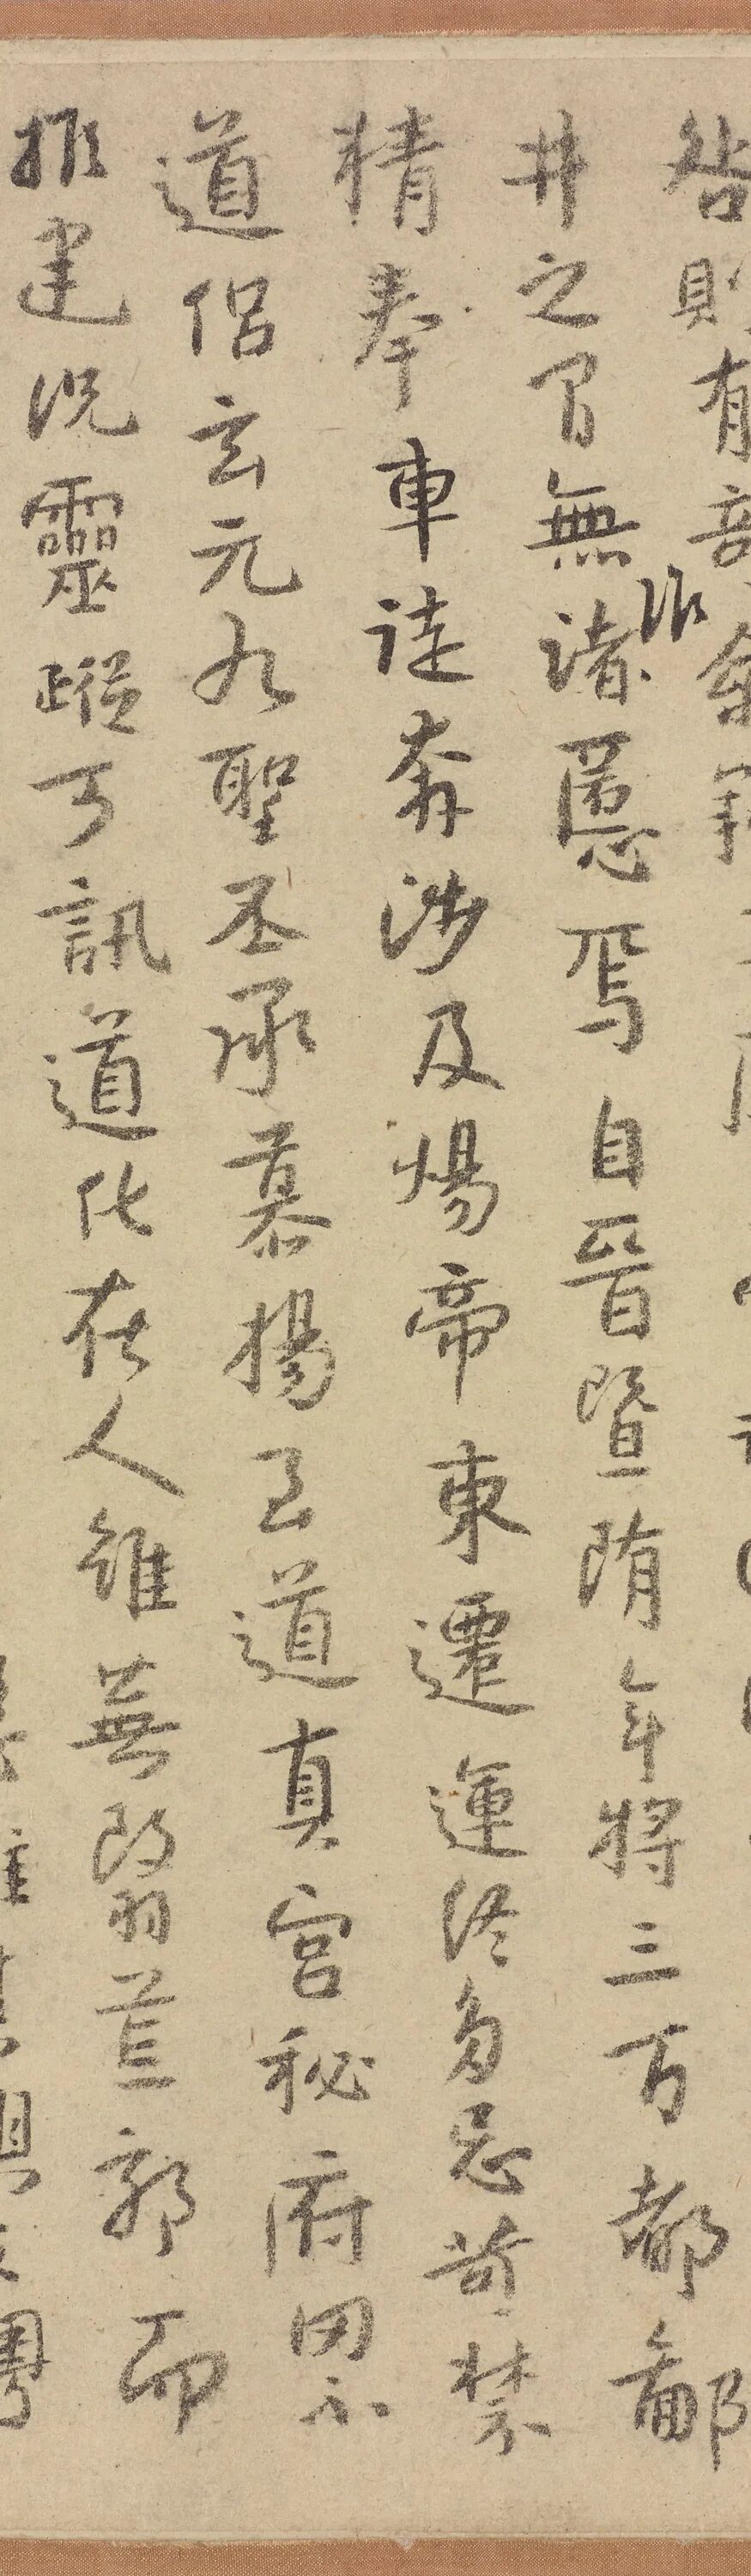 咎則有
井之間無諸慝焉自晉暨隋年將三百都鄙
精奉車徒奔涉及煬帝東遷運終多忌苛禁
道侶玄元九聖丕承慕揚至道真宮秘府罔不
建況靈蹤可訊道化在人雖蕪翳荒郊而